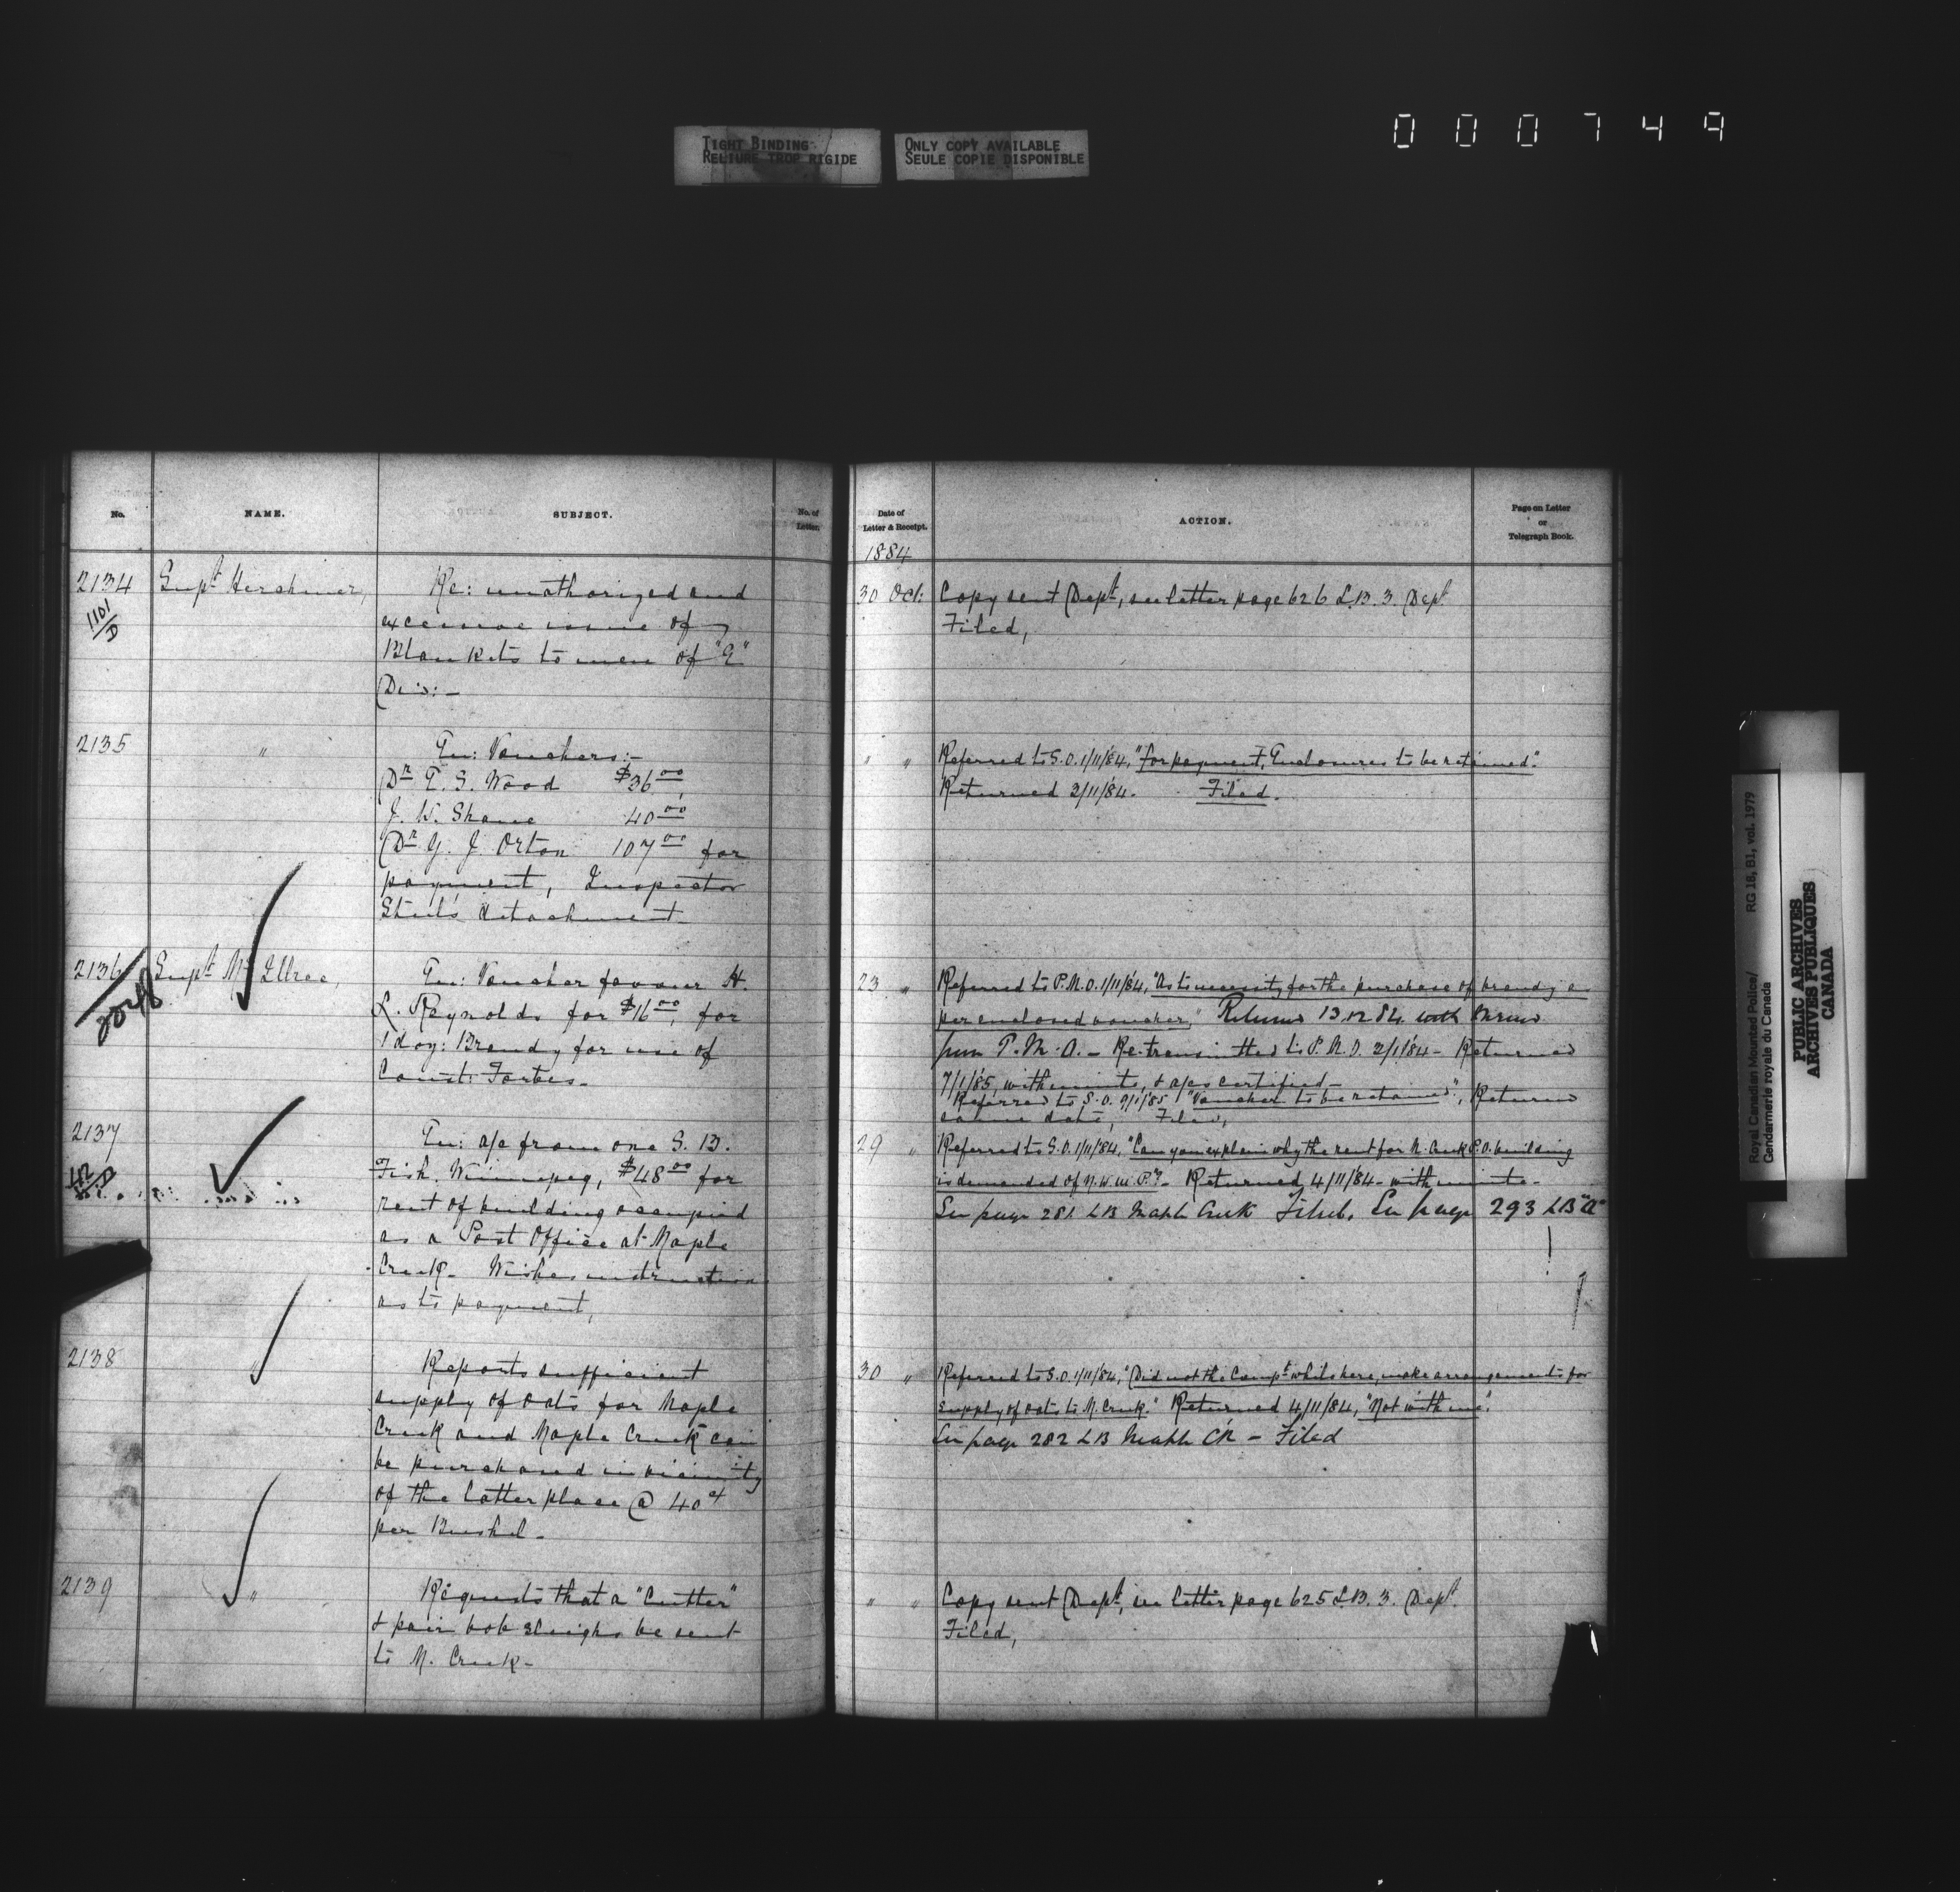 TIGHT BINDING
RELIURE TROP RIGIDE
ONLY COPY AVAILABLE
SEULE COPIE DISPONIBLE
000749
No. NAME. SUBJECT. No. of Letter.
2134 Supt Herchmer, Re: unathorized and
1101/D excessive issue of
Blankets to men of "E"
Div:-
2135 " En: Vouchers:-
Dr E. S. Wood $36 00
J. W. Shane 40 00
Dr G. J. Orton 107 00 for
payment, Inspector
Steele's detachment
2136 Supt Mc Illree, En: Voucher favour H.
2048 L. Reynolds for $16 00, for
1 doz: Brandy for use of
Const: Forbes-
2137 En: a/c from one S. B.
Fish. Winnipeg, $48 00 for
rent of building occupied
as a Post Office at Maple
Creek- Wishes instructions
as to payment,
2138 " Reports sufficient
supply of oats for Maple
Creek and Maple Creek can
be purchased in vicinity
of the latter place @ 40 ct
per Bushel-
2139 " Requests that a "Cutter"
& pair bob sleighs be sent
to M. Creek-
Date of Letter & Receipt. ACTION. Page on Letter or Telegraph Book.
1884
30 Oct: Copy sent Dept, see letter page 626 L.B. 3. Dept
Filed,
" " Referred to S.O. 1/11/84, "For payment, Enclosures to be retained."
Returned 3/11/84. Filed.
23 " Referred to P.M.O. 1/11/84, "As to necessity for the purchase of brandy as
per enclosed voucher," Returned 13.12.84 with
from P.M.O.- Re-transmitted to P.M.O. 2/1/84- Returned
7/1/85, with minute, & a/cs certified-
Referred to S.O. 9/1/85 "Voucher to be retained", Returned
same date, Filed,
29 " Referred to S.O. 1/11/84, "Can you explain why the rent for M. Creek P.O. building
is demanded of N.W.M.P."?- Returned 4/11/84- with minute-
See page 281 LB Maple Creek Filed. See page 293 LB "A"
30 " Referred to S.O. 1/11/84, "Did not the Compt whilst here, make arrangements for
supply of oats to M. Creek." Returned 4/11/84, "Not with me".
See page 282 LB Maple CK - Filed
" " Copy sent Dept, see letter page 625 L.B. 3. Dept.
Filed,
Royal Canadian Mounted Police/
Gendarmerie royale du Canada
RG 18, B1, vol. 1979
PUBLIC ARCHIVES
ARCHIVES PUBLIQUES
CANADA